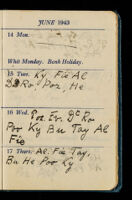 JUNE 1943
14 Mon.
Whit Monday. Bank Holiday.
15 Tues. Ky, Fie Al
Ro, Poz, He
16 Wed. Poz. Er. Ro
Por Ky Bu Tay Al
Fie
17 Thurs. Al. Fie Tay.
Bu He Por Ky